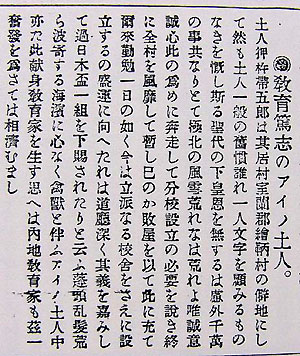 教育篤志のアイノ土人。
土人押杵帶五郎は其居村室蘭郡繪鞆村の僻地にし
て然も土人一般の舊慣誰れ一人文字を顧みるもの
なきを慨し斯る聖代の下皇恩を無するは意外千萬
の事共なりとて極北の風雪荒れなは荒れよ唯誠意
誠心此の爲めに奔走して分校設立の必要を説き終
に全村を風靡して暫し已のか敗屋を以て此に充て
爾來勤勉一日の如く今は立派なる校舎をさへに設
立するの盛運に向へたれは道廳深く其義を嘉みし
て過日木盃一組を下賜されたりと云ふ蓬頭乱髪荒
ら波寄する海濱に心なく禽獣と伴ふアイノ土人中
亦た此献身教育家を生す思へは内地教育家も茲一
奮發を爲さては相濟むまし